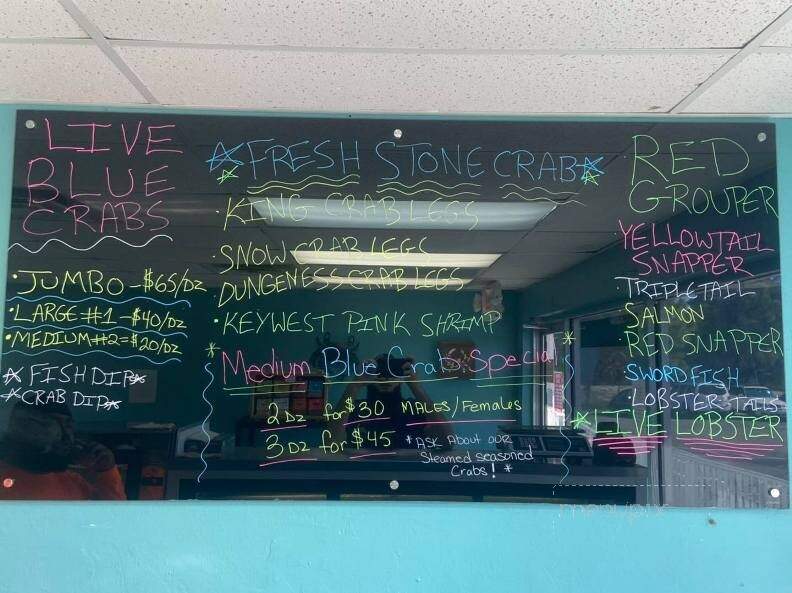 LIVE
BLUE
CRABS
·JUMBO-$65/DZ
·LARGE #1-$40/DZ
·MEDIUM#2=$20/DZ
FISH DIP
CRAB DIP
FRESH STONE CRAB
·KING CRAB LEGS
·SNOW CRAB LEGS
·DUNGENESS CRAB LEGS
·KEYWEST PINK SHRIMP
Medium Blue Crab Special
2 DZ for $30 MALES/Females
3 DZ for $45 *ASK About our
Steamed seasoned
Crabs! *
·RED
GROUPER
·YELLOWTAIL
SNAPPER
·TRIPLETAIL
·SALMON
·RED SNAPPER
·SWORDFISH
·LOBSTER TAILS
*LIVE LOBSTER